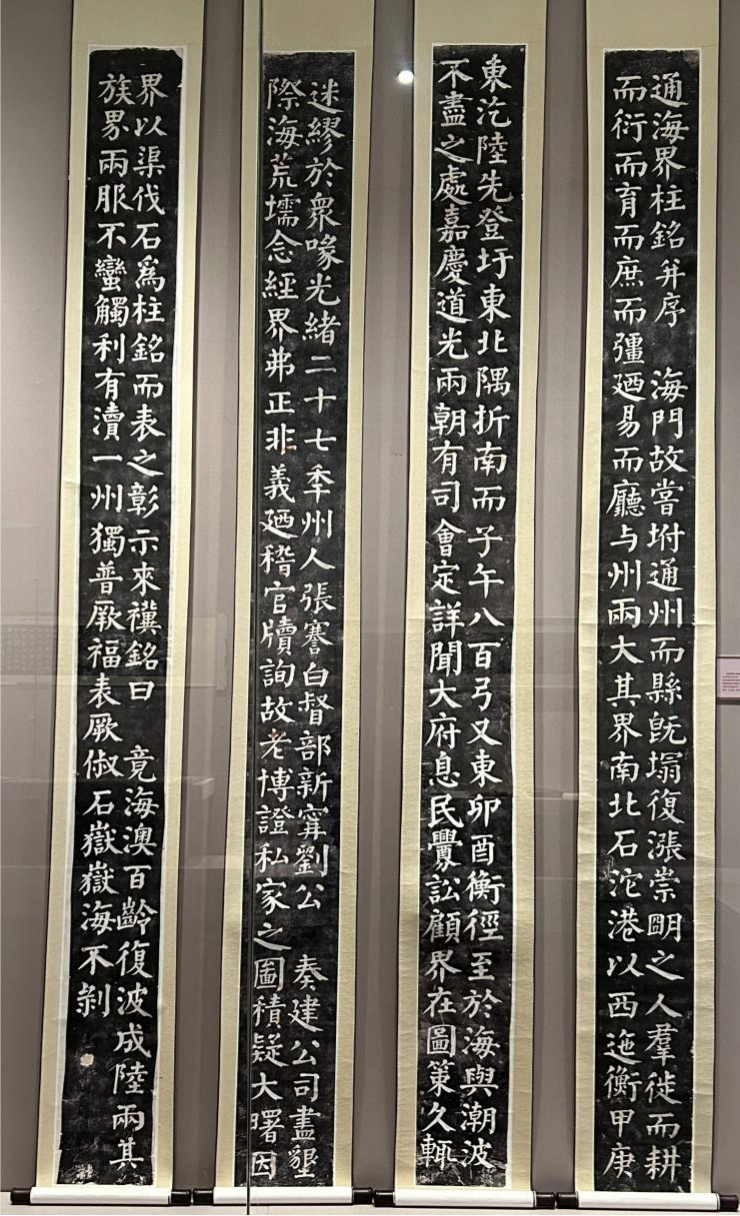 通海界柱銘并序　海門故嘗坿通州而縣旣塌復漲崇明之人羣徙而耕
而衍而育而庶而彊廼易而廳与州兩大其界南北石沱港以西迤衡甲庚
東汔陸先登圩東北隅折南而子午八百弓又東卯酉衡徑至於海與潮波
不盡之處嘉慶道光兩朝有司會定詳聞大府息民釁訟顧界在圖策久輒
迷繆於衆喙光緒二十七季州人張謇白督部新寗劉公　奏建公司盡墾
際海荒壖念經界弗正非義廼稽官牘詢故老博證私家之圖積疑大曙因
界以渠伐石爲柱銘而表之彰示來禩銘曰　竟海澳百齡復波成陸兩其
族界兩服不蠻觸利有瀆一州獨普厥福表厥俶石嶽嶽海不剝